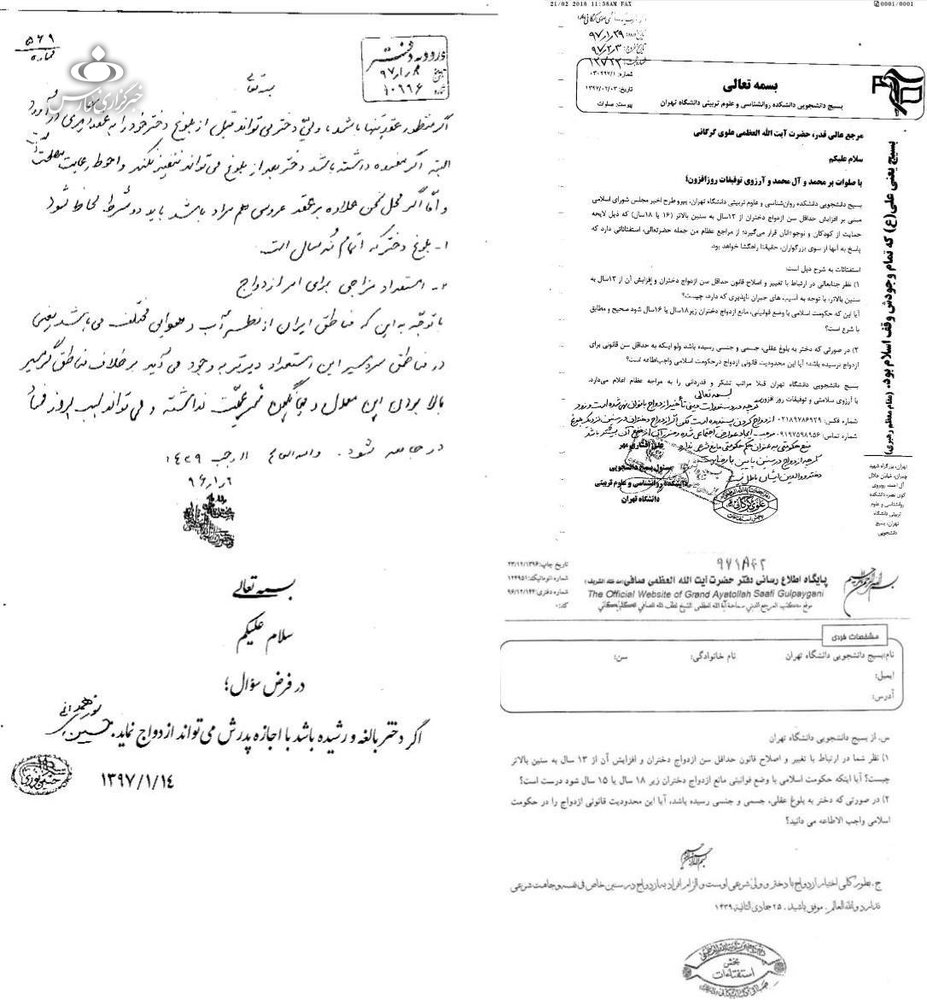 ۵۶۹
شماره
خبرگزاری فارس
ورود به دفتر
تاریخ ۹۷/۱/۸
شماره ۱۰۹۹۶
بسمه تعالی
اگر منظور عقد تنها باشد، ولیّ دختر می تواند قبل از بلوغ دختر خود را به عقد دیگری در آورد
البته اگر مفسده داشته باشد دختر بعد از بلوغ می تواند تنفیذ نکند و احوط رعایت مصلحت است
و امّا اگر محل علاوه بر عقد عروسی هم مراد باشد باید دو شرط لحاظ شود
۱- بلوغ دختر که اتمام نه سال است.
۲- استعداد مزاجی برای امر ازدواج
با توجّه به این که مناطق ایران از نظر آب و هوایی مختلف می باشد یعنی
در مناطق سردسیر این استعداد دیرتر به وجود می آید بر خلاف مناطق گرمسیر
بالا بردن این معدل و میانگین هیچ نداشته و می تواند سبب بروز فساد
در جامعه شود. والله العالم ۱۱ رجب ۱۴۳۹
بسمه تعالی
سلام علیکم
در فرض سؤال؛
اگر دختر بالغه و رشیده باشد با اجازه پدرش می تواند ازدواج نماید.
حسین نوری همدانی
۱۳۹۷/۱/۱۴
21/02/2018 11:38AM FAX
0001/0001
تاریخ ورود: ۹۷/۱/۲۹
تاریخ خروج: ۹۷/۲/۳
شماره ثبت: ۱۲۷۲۲
بسمه تعالی
بسیج دانشجویی دانشکده روانشناسی و علوم تربیتی دانشگاه تهران
شماره: ۰۳۰۹۹۷/۱
تاریخ: ۱۳۹۷/۰۲/۰۳
پیوست: صلوات
مرجع عالی قدر، حضرت آیت الله العظمی علوی گرگانی
سلام علیکم
با صلوات بر محمد و آل محمد و آرزوی توفیقات روزافزون؛
بسیج دانشجویی دانشکده روان‌شناسی و علوم تربیتی دانشگاه تهران، پیرو طرح اخیر مجلس شورای اسلامی
مبنی بر افزایش حداقل سن ازدواج دختران از ۱۳سال به سنین بالاتر (۱۶ یا ۱۸سال) که ذیل لایحه
حمایت از کودکان و نوجوانان قرار می‌گیرد؛ از مراجع عظام من جمله حضرتعالی، استفتائاتی دارد که
پاسخ به آنها از سوی بزرگواران، حقیقتا راهگشا خواهد بود.
استفتائات به شرح ذیل است:
۱) نظر جنابعالی در ارتباط با تغییر و اصلاح قانون حداقل سن ازدواج دختران و افزایش آن از ۱۳سال به
سنین بالاتر، با توجه به آسیب های جبران ناپذیری که دارد، چیست؟
آیا این که حکومت اسلامی با وضع قوانینی، مانع ازدواج دختران زیر ۱۸سال یا ۱۶سال شود صحیح و مطابق
با شرع است؟
۲) در صورتی که دختر به بلوغ عقلی، جسمی و جنسی رسیده باشد ولو اینکه به حداقل سن قانونی برای
ازدواج نرسیده باشد؛ آیا این محدودیت قانونی ازدواج درحکومت اسلامی واجب‌اطاعه است؟
بسیج دانشجویی دانشگاه تهران قبلا مراتب تشکر و قدردانی را به مراجعه عظام اعلام می‌دارد.
با آرزوی سلامتی و توفیقات روز افزون
بسمه تعالی
شماره فکس: ۰۲۱۸۹۷۸۶۹۲۹
شماره تماس: ۰۹۱۹۷۵۹۸۹۵۶
علی افشاری مهر
مسئول بسیج دانشجویی
دانشکده روانشناسی و علوم تربیتی
دانشگاه تهران
بسیج یعنی علی(ع) که تمام وجودش وقف اسلام بود. (مقام معظم رهبری)
تهران، بزرگراه شهید
چمران، خیابان جلال
آل احمد، روبروی
کوی نصر، دانشکده
روانشناسی و علوم
تربیتی دانشگاه
تهران، بسیج
دانشجویی
۹۷۱۸۴۲
پایگاه اطلاع رسانی دفتر حضرت آیت الله العظمی صافی (مد ظله الشریف)
The Official Website of Grand Ayatollah Saafi Gulpaygani
تاریخ چاپ: ۲۳/۱۲/۱۳۹۶
شماره اتوماتیک: ۱۲۴۹۵۱
شماره دفتری: ۹۶/۱۲/۱۴۴
کد: ۰
مشخصات فردی
نام: بسیج دانشجویی دانشگاه تهران نام خانوادگی: سن:
ایمیل:
آدرس:
س. از بسیج دانشجویی دانشگاه تهران
۱) نظر شما در ارتباط با تغییر و اصلاح قانون حداقل سن ازدواج دختران و افزایش آن از ۱۳ سال به سنین بالاتر
چیست؟ آیا اینکه حکومت اسلامی با وضع قوانینی مانع ازدواج دختران زیر ۱۸ سال یا ۱۵ سال شود درست است؟
۲) در صورتی که دختر به بلوغ عقلی، جسمی و جنسی رسیده باشد، آیا این محدودیت قانونی ازدواج را در حکومت
اسلامی واجب الاطاعه می دانید؟
ج. بطور کلی اختیار ازدواج با دختر و ولیّ شرعی اوست و الزام افراد به ازدواج در سنین خاص فی نفسه وجاهت شرعی
ندارد والله العالم. موفق باشید. ۲۵ جمادی الثانیة ۱۴۳۹
بخش
استفتاءات